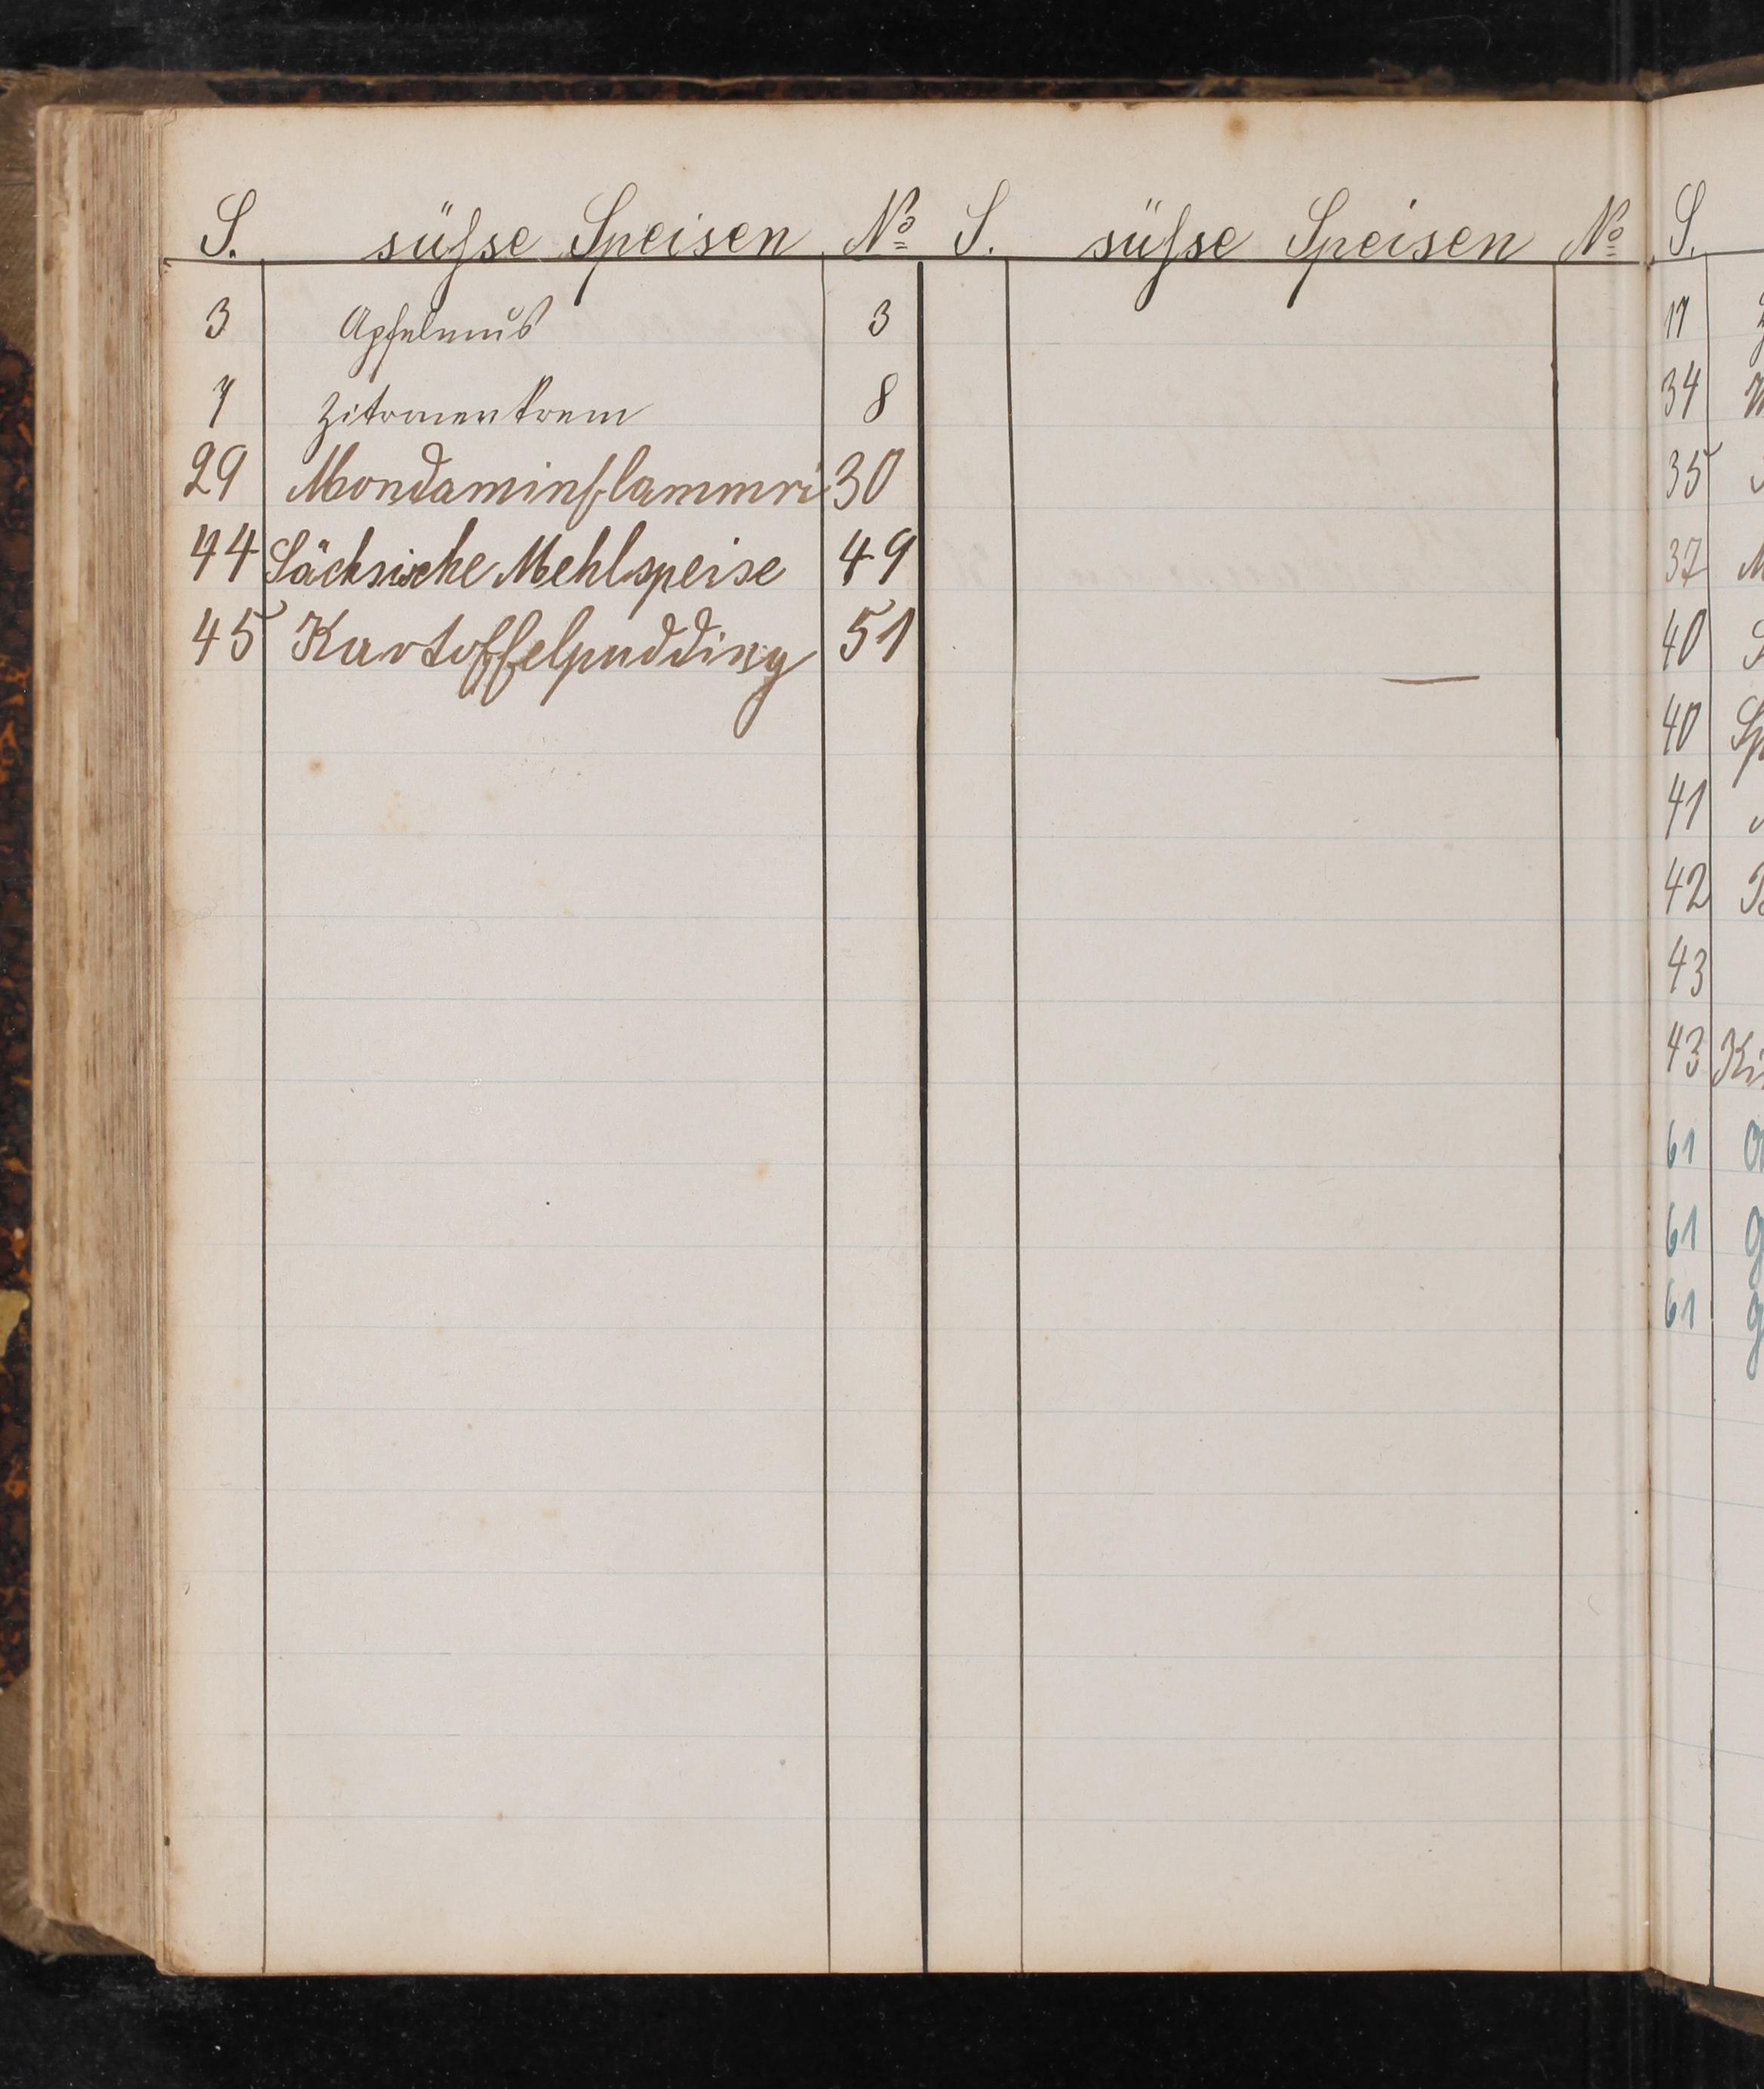 S. süſse Speisen No S. süſse Speisen No
3 Apfelmus 3
7 Zitronenkrem 8
29 Mondaminflammri 30
44 Sächsische Mehlspeise 49
45 Kartoffelpudding 51
S.
17
34
35
37
40
40
41
42
43
43
61
61
61